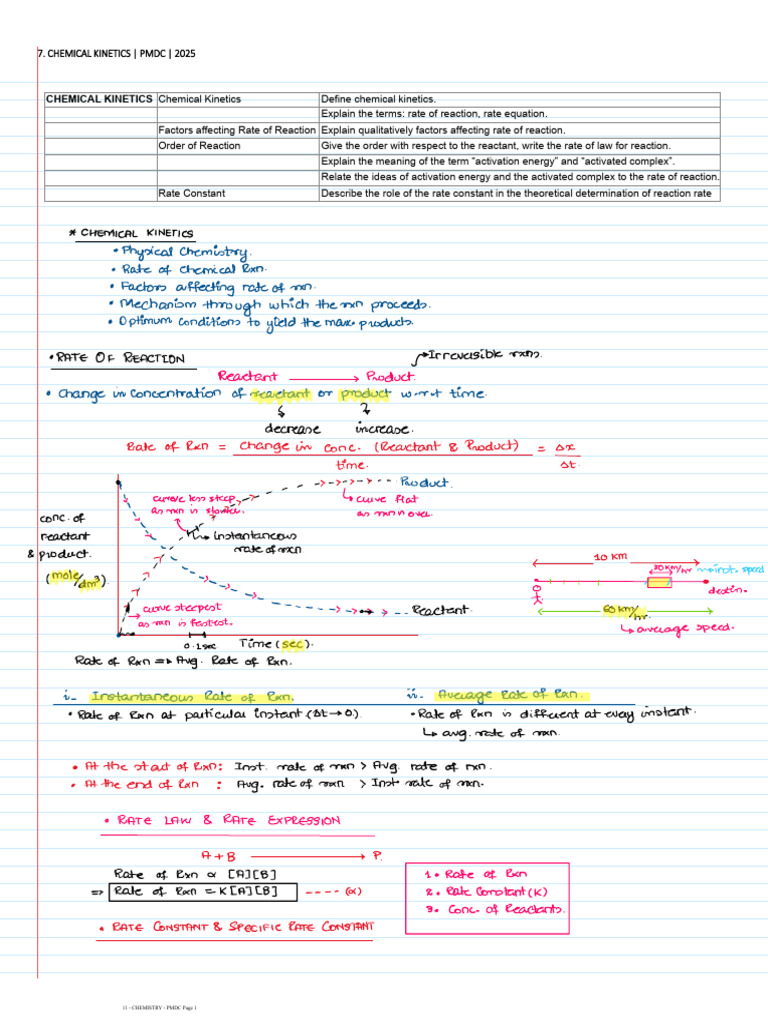 7. CHEMICAL KINETICS | PMDC | 2025
CHEMICAL KINETICS Chemical Kinetics Define chemical kinetics.
Explain the terms: rate of reaction, rate equation.
Factors affecting Rate of Reaction Explain qualitatively factors affecting rate of reaction.
Order of Reaction Give the order with respect to the reactant, write the rate of law for reaction.
Explain the meaning of the term "activation energy" and "activated complex".
Relate the ideas of activation energy and the activated complex to the rate of reaction.
Rate Constant Describe the role of the rate constant in the theoretical determination of reaction rate
* CHEMICAL KINETICS
• Physical Chemistry.
• Rate of Chemical Rxn.
• Factors affecting rate of rxn.
• Mechanism through which the rxn proceeds.
• Optimum conditions to yield the max. products.
• RATE OF REACTION
→ Irreversible rxns.
Reactant → Product.
• Change in Concentration of reactant or product w.r.t time.
decrease increase.
Rate of Rxn = Change in Conc. (Reactant & Product) / time. = Δx / Δt
Product.
curve less steep
as rxn is slower.
curve flat
as rxn is over.
conc. of
reactant
& product.
(mole/dm³).
Instantaneous
rate of rxn
10 KM
20 km/hr → inst. speed
destin.
60 km/hr.
↳ average speed.
curve steepest
as rxn is fastest.
Reactant.
0.1 sec
Time (sec).
Rate of Rxn ⇒ Avg. Rate of Rxn.
i- Instantaneous Rate of Rxn. ii- Average Rate of Rxn.
• Rate of Rxn at particular instant (Δt → 0). • Rate of Rxn is different at every instant.
↳ avg. rate of rxn.
• At the start of Rxn: Inst. rate of rxn > Avg. rate of rxn.
• At the end of Rxn : Avg. rate of rxn > Inst rate of rxn.
• RATE LAW & RATE EXPRESSION
A + B → P.
Rate of Rxn α [A][B]
⇒ Rate of Rxn = K[A][B] ---- (α)
1. Rate of Rxn
2. Rate Constant (K)
3. Conc. of Reactants.
• RATE CONSTANT & SPECIFIC RATE CONSTANT
11 - CHEMISTRY - PMDC Page 1